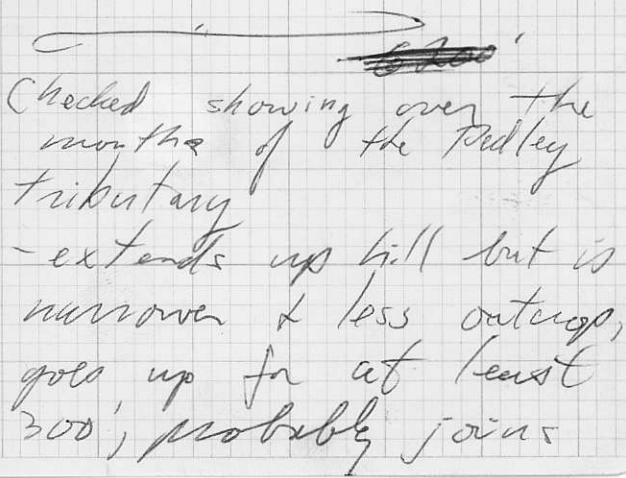 Checked showing over the
months of the Pedley
tributary
- extends up hill but is
narrower & less outcrop,
goes up for at least
300', probably joins